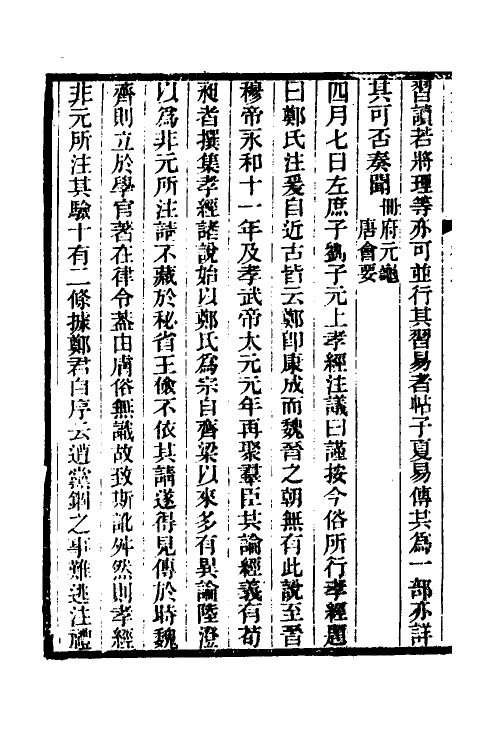 習讀若將理等亦可並行其習易者帖子夏易傳其爲一部亦詳
其可否奏聞冊府元龜
唐會要
四月七日左庶子劉子元上孝經注議曰謹按今俗所行孝經題
曰鄭氏注爰自近古皆云鄭卽康成而魏晉之朝無有此說至晉
穆帝永和十一年及孝武帝太元元年再聚羣臣其論經義有荀
昶者撰集孝經諸說始以鄭氏爲宗自齊梁以來多有異論陸澄
以爲非元所注請不藏於秘省王儉不依其請遂得見傳於時魏
齊則立於學官著在律令蓋由膚俗無識故致斯訛舛然則孝經
非元所注其驗十有二條據鄭君自序云遭黨錮之事難逃注禮